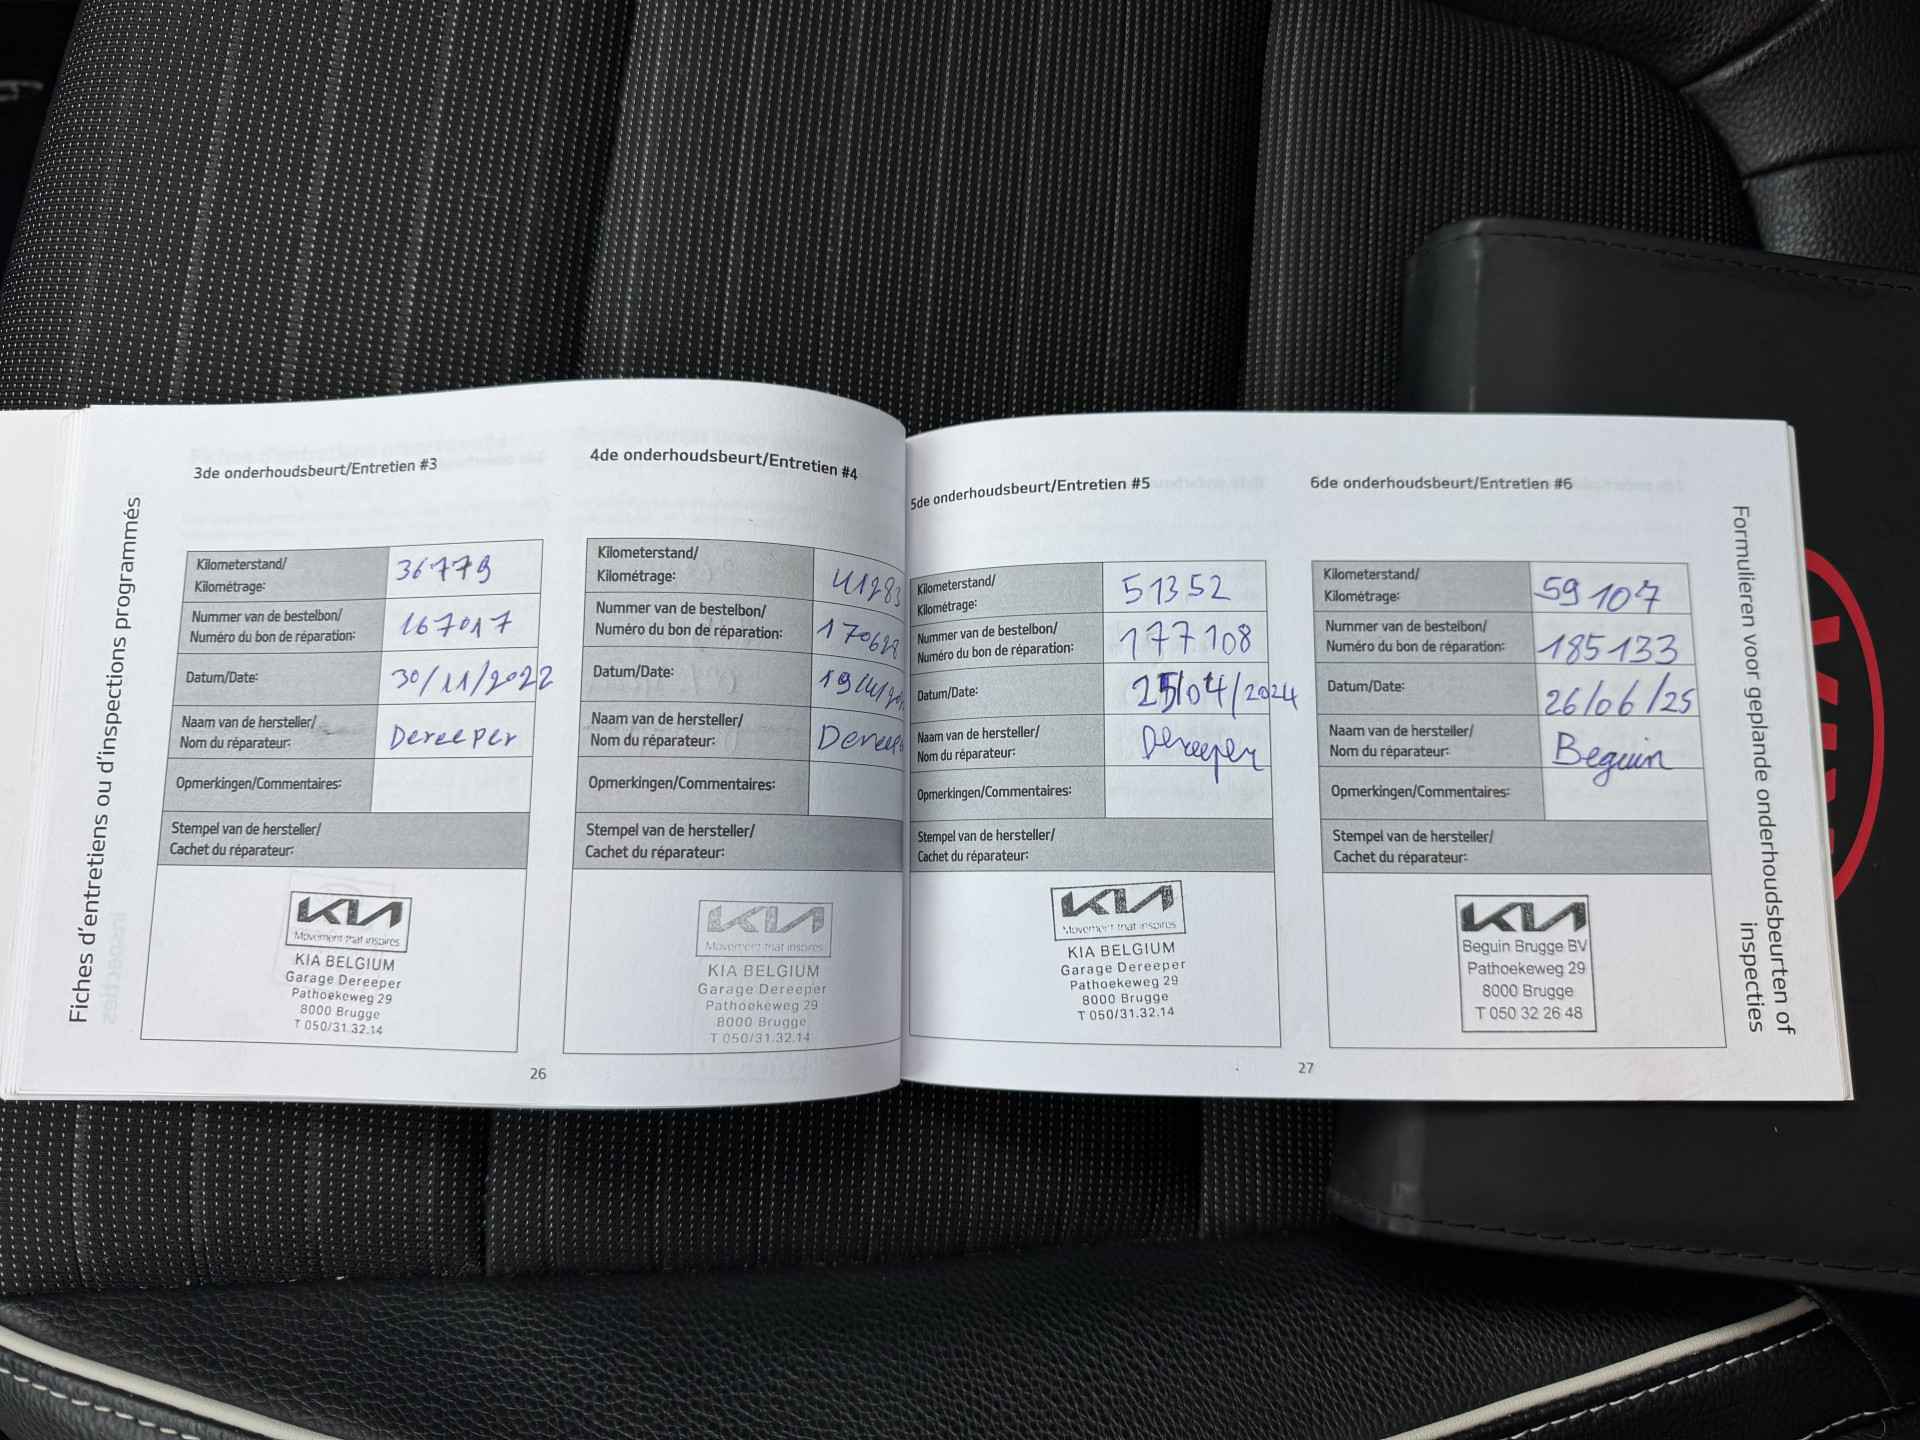 Fiches d'entretiens ou d'inspections programmés
3de onderhoudsbeurt/Entretien #3
Kilometerstand/
Kilométrage:
36779
Nummer van de bestelbon/
Numéro du bon de réparation:
167017
Datum/Date:
30/11/2022
Naam van de hersteller/
Nom du réparateur:
Dereeper
Opmerkingen/Commentaires:
Stempel van de hersteller/
Cachet du réparateur:
KIA
Movement that inspires
KIA BELGIUM
Garage Dereeper
Pathoekeweg 29
8000 Brugge
T 050/31.32.14
4de onderhoudsbeurt/Entretien #4
Kilometerstand/
Kilométrage:
Nummer van de bestelbon/
Numéro du bon de réparation:
Datum/Date:
Naam van de hersteller/
Nom du réparateur:
Opmerkingen/Commentaires:
Stempel van de hersteller/
Cachet du réparateur:
KIA
Movement that inspires
KIA BELGIUM
Garage Dereeper
Pathoekeweg 29
8000 Brugge
T 050/31.32.14
26
5de onderhoudsbeurt/Entretien #5
Kilometerstand/
Kilométrage:
51352
Nummer van de bestelbon/
Numéro du bon de réparation:
177108
Datum/Date:
25/04/2024
Naam van de hersteller/
Nom du réparateur:
Dereeper
Opmerkingen/Commentaires:
Stempel van de hersteller/
Cachet du réparateur:
KIA
Movement that inspires
KIA BELGIUM
Garage Dereeper
Pathoekeweg 29
8000 Brugge
T 050/31.32.14
6de onderhoudsbeurt/Entretien #6
Kilometerstand/
Kilométrage:
59107
Nummer van de bestelbon/
Numéro du bon de réparation:
185133
Datum/Date:
26/06/25
Naam van de hersteller/
Nom du réparateur:
Beguin
Opmerkingen/Commentaires:
Stempel van de hersteller/
Cachet du réparateur:
KIA
Beguin Brugge BV
Pathoekeweg 29
8000 Brugge
T 050 32 26 48
27
Formulieren voor geplande onderhoudsbeurten of
inspecties